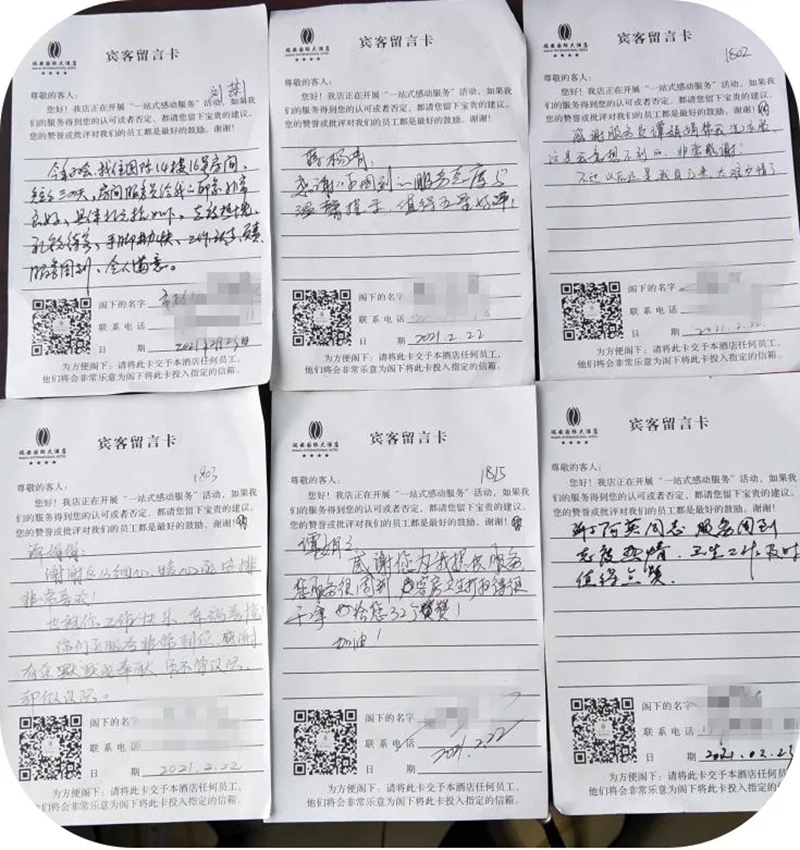 瑞安国际大酒店
宾客留言卡
刘琪
尊敬的客人：
您好！我店正在开展“一站式感动服务”活动，如果我
们的服务得到您的认可或者否定，都请您留下宝贵的建议。
您的赞誉或批评对我们的员工都是最好的鼓励。谢谢！
我住国际14楼16号房间，
房间服务员给我们印象非常
良好，具体表现如下，
礼貌待客、手脚勤快、工作认真负责
服务周到、令人满意。
阁下的名字
联系电话
日 期 2021年2月23日
为方便阁下：请将此卡交予本酒店任何员工，
他们将会非常乐意为阁下将此卡投入指定的信箱。
瑞安国际大酒店
宾客留言卡
尊敬的客人：
您好！我店正在开展“一站式感动服务”活动，如果我
们的服务得到您的认可或者否定，都请您留下宝贵的建议。
您的赞誉或批评对我们的员工都是最好的鼓励。谢谢！
蒋杨清：
感谢你周到的服务态度与
温馨提示，值得五星好评！
阁下的名字
联系电话
日 期 2021.2.22
为方便阁下：请将此卡交予本酒店任何员工，
他们将会非常乐意为阁下将此卡投入指定的信箱。
瑞安国际大酒店
宾客留言卡
1802
尊敬的客人：
您好！我店正在开展“一站式感动服务”活动，如果我
们的服务得到您的认可或者否定，都请您留下宝贵的建议。
您的赞誉或批评对我们的员工都是最好的鼓励。谢谢！
感谢服务员谭娟娟帮我洗衣服
这是我意想不到的，非常感谢！
不过以后还是我自己来，太难为情了
阁下的名字
联系电话
日 期 2021.2.22.
为方便阁下：请将此卡交予本酒店任何员工，
他们将会非常乐意为阁下将此卡投入指定的信箱。
瑞安国际大酒店
宾客留言卡
1803
尊敬的客人：
您好！我店正在开展“一站式感动服务”活动，如果我
们的服务得到您的认可或者否定，都请您留下宝贵的建议。
您的赞誉或批评对我们的员工都是最好的鼓励。谢谢！
非常喜欢！
也祝你工作快乐，幸福
你们的服务非常到位，感谢
有你默默的奉献
阁下的名字
联系电话
日 期 2021.2.22
为方便阁下：请将此卡交予本酒店任何员工，
他们将会非常乐意为阁下将此卡投入指定的信箱。
瑞安国际大酒店
宾客留言卡
1815
尊敬的客人：
您好！我店正在开展“一站式感动服务”活动，如果我
们的服务得到您的认可或者否定，都请您留下宝贵的建议。
您的赞誉或批评对我们的员工都是最好的鼓励。谢谢！
感谢您为我提供服务
您服务很周到 客房卫生打扫得很
干净 给您32个赞赞！
加油！
阁下的名字
联系电话
日 期 2021.2.22
为方便阁下：请将此卡交予本酒店任何员工，
他们将会非常乐意为阁下将此卡投入指定的信箱。
瑞安国际大酒店
宾客留言卡
尊敬的客人：
您好！我店正在开展“一站式感动服务”活动，如果我
们的服务得到您的认可或者否定，都请您留下宝贵的建议。
您的赞誉或批评对我们的员工都是最好的鼓励。谢谢！
阿英同志 服务周到
态度热情，卫生工作及时
值得点赞.
阁下的名字
联系电话
日 期 2021.02.23
为方便阁下：请将此卡交予本酒店任何员工，
他们将会非常乐意为阁下将此卡投入指定的信箱。